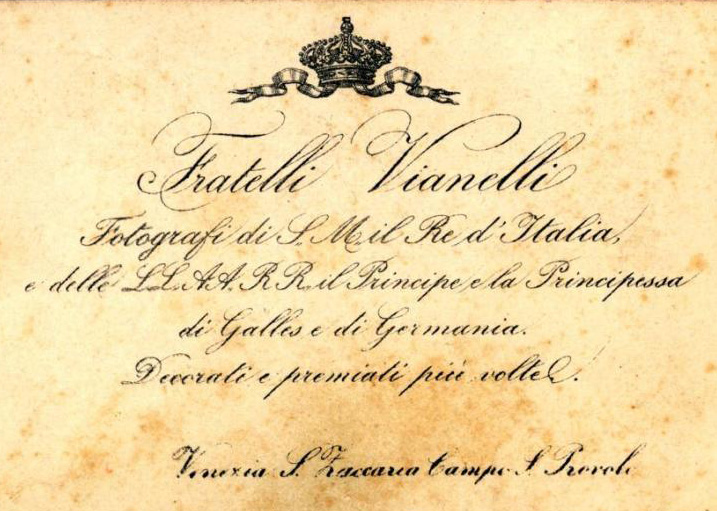 Fratelli Vianelli
Fotografi di S. M. il Re d'Italia,
e delle LL. AA. RR. il Principe e la Principessa
di Galles e di Germania.
Decorati e premiati più volte.
Venezia S. Zaccaria Campo S. Provolo